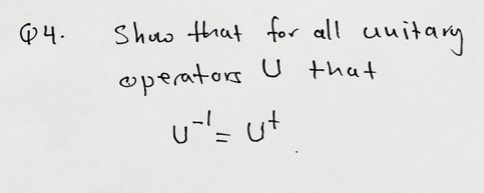 Q4. Show that for all unitary
operators U that
U⁻¹ = U†.